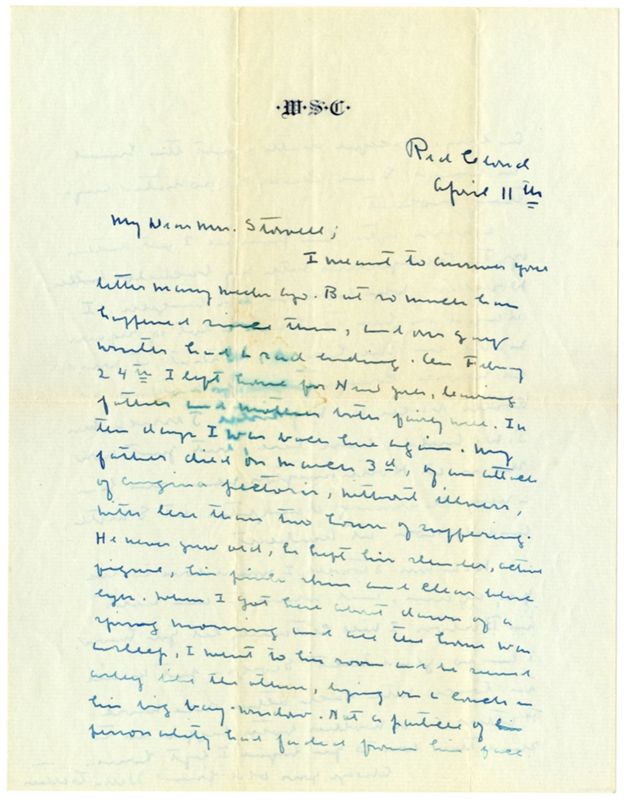 ·W·S·C·
Red Cloud
April 11th
My Dear Mrs. Stowell;
I meant to answer your
letter many weeks ago. But so much has
happened since then, and our gay
winter had a sad ending. On February
24th I left home for New York, leaving
father and mother both fairly well. In
ten days I was back here again. My
father died on March 3d, of an attack
of angina pectoris, without illness,
with less than two hours of suffering.
He never grew old, he kept his slender, active
figure, his pink skin and clear blue
eyes. When I got here about dawn of a
spring morning and all the house was
asleep, I went to his room and he seemed
asleep like the others, lying on a couch in
his big bay-window. Not a particle of his
personality had faded from his face